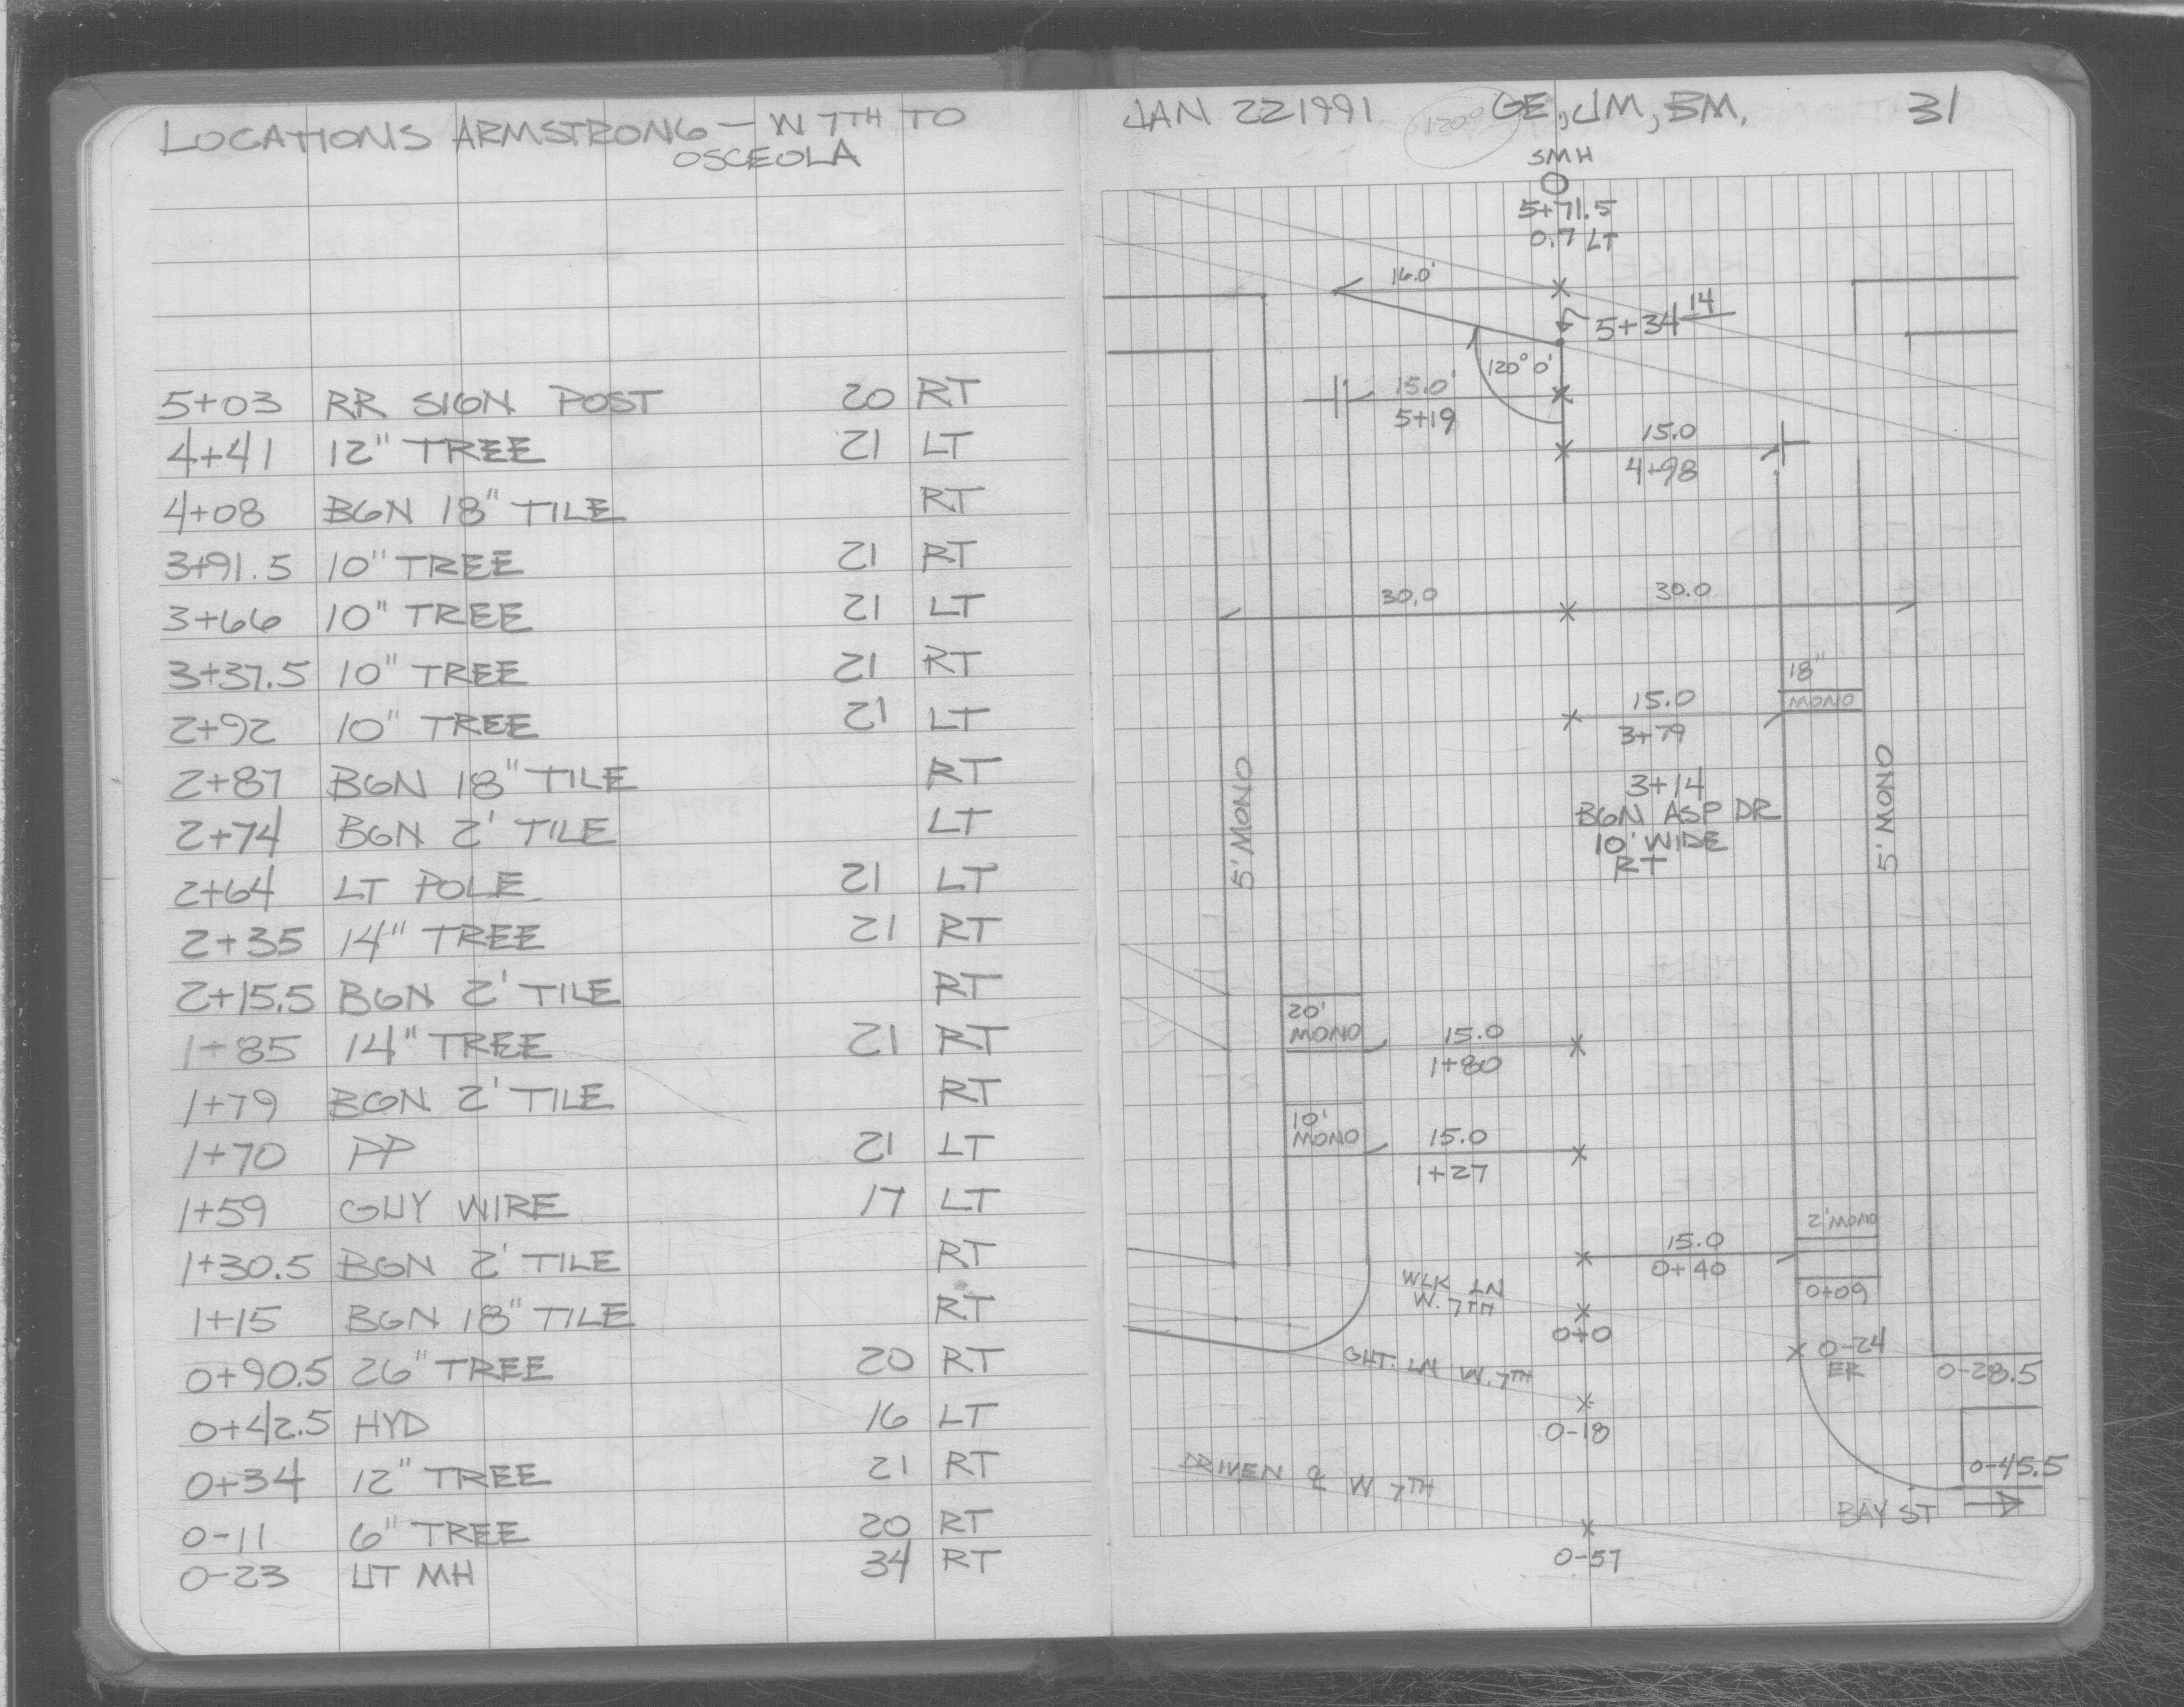 LOCATIONS ARMSTRONG — W 7TH TO
OSCEOLA
5+03 RR SIGN POST 20 RT
4+41 12" TREE 21 LT
4+08 BGN 18" TILE RT
3+91.5 10" TREE 21 RT
3+66 10" TREE 21 LT
3+37.5 10" TREE 21 RT
2+92 10" TREE 21 LT
2+87 BGN 18" TILE RT
2+74 BGN 2' TILE LT
2+64 LT POLE 21 LT
2+35 14" TREE 21 RT
2+15.5 BGN 2' TILE RT
1+85 14" TREE 21 RT
1+79 BGN 2' TILE RT
1+70 PP 21 LT
1+59 GUY WIRE 17 LT
1+30.5 BGN 2' TILE RT
1+15 BGN 18" TILE RT
0+90.5 26" TREE 20 RT
0+42.5 HYD 16 LT
0+34 12" TREE 21 RT
0-11 6" TREE 20 RT
0-23 UT MH 34 RT
JAN 22 1991 120° GE, JM, BM, 31
SMH
5+71.5
0.7 LT
16.0'
5+34 14
120° 0'
15.0'
5+19
15.0
4+98
30.0 30.0
18"
MONO
15.0
3+79
3+14
BGN ASP DR
10' WIDE
RT
5' MONO
5' MONO
20'
MONO
15.0
1+80
10'
MONO
15.0
1+27
2' MONO
15.0
0+40
0+09
WLK LN
W. 7TH
0+0
0-24
ER
GUT. LN W. 7TH
0-28.5
0-18
DRIVEN ℄ W 7TH
0-45.5
BAY ST
0-57